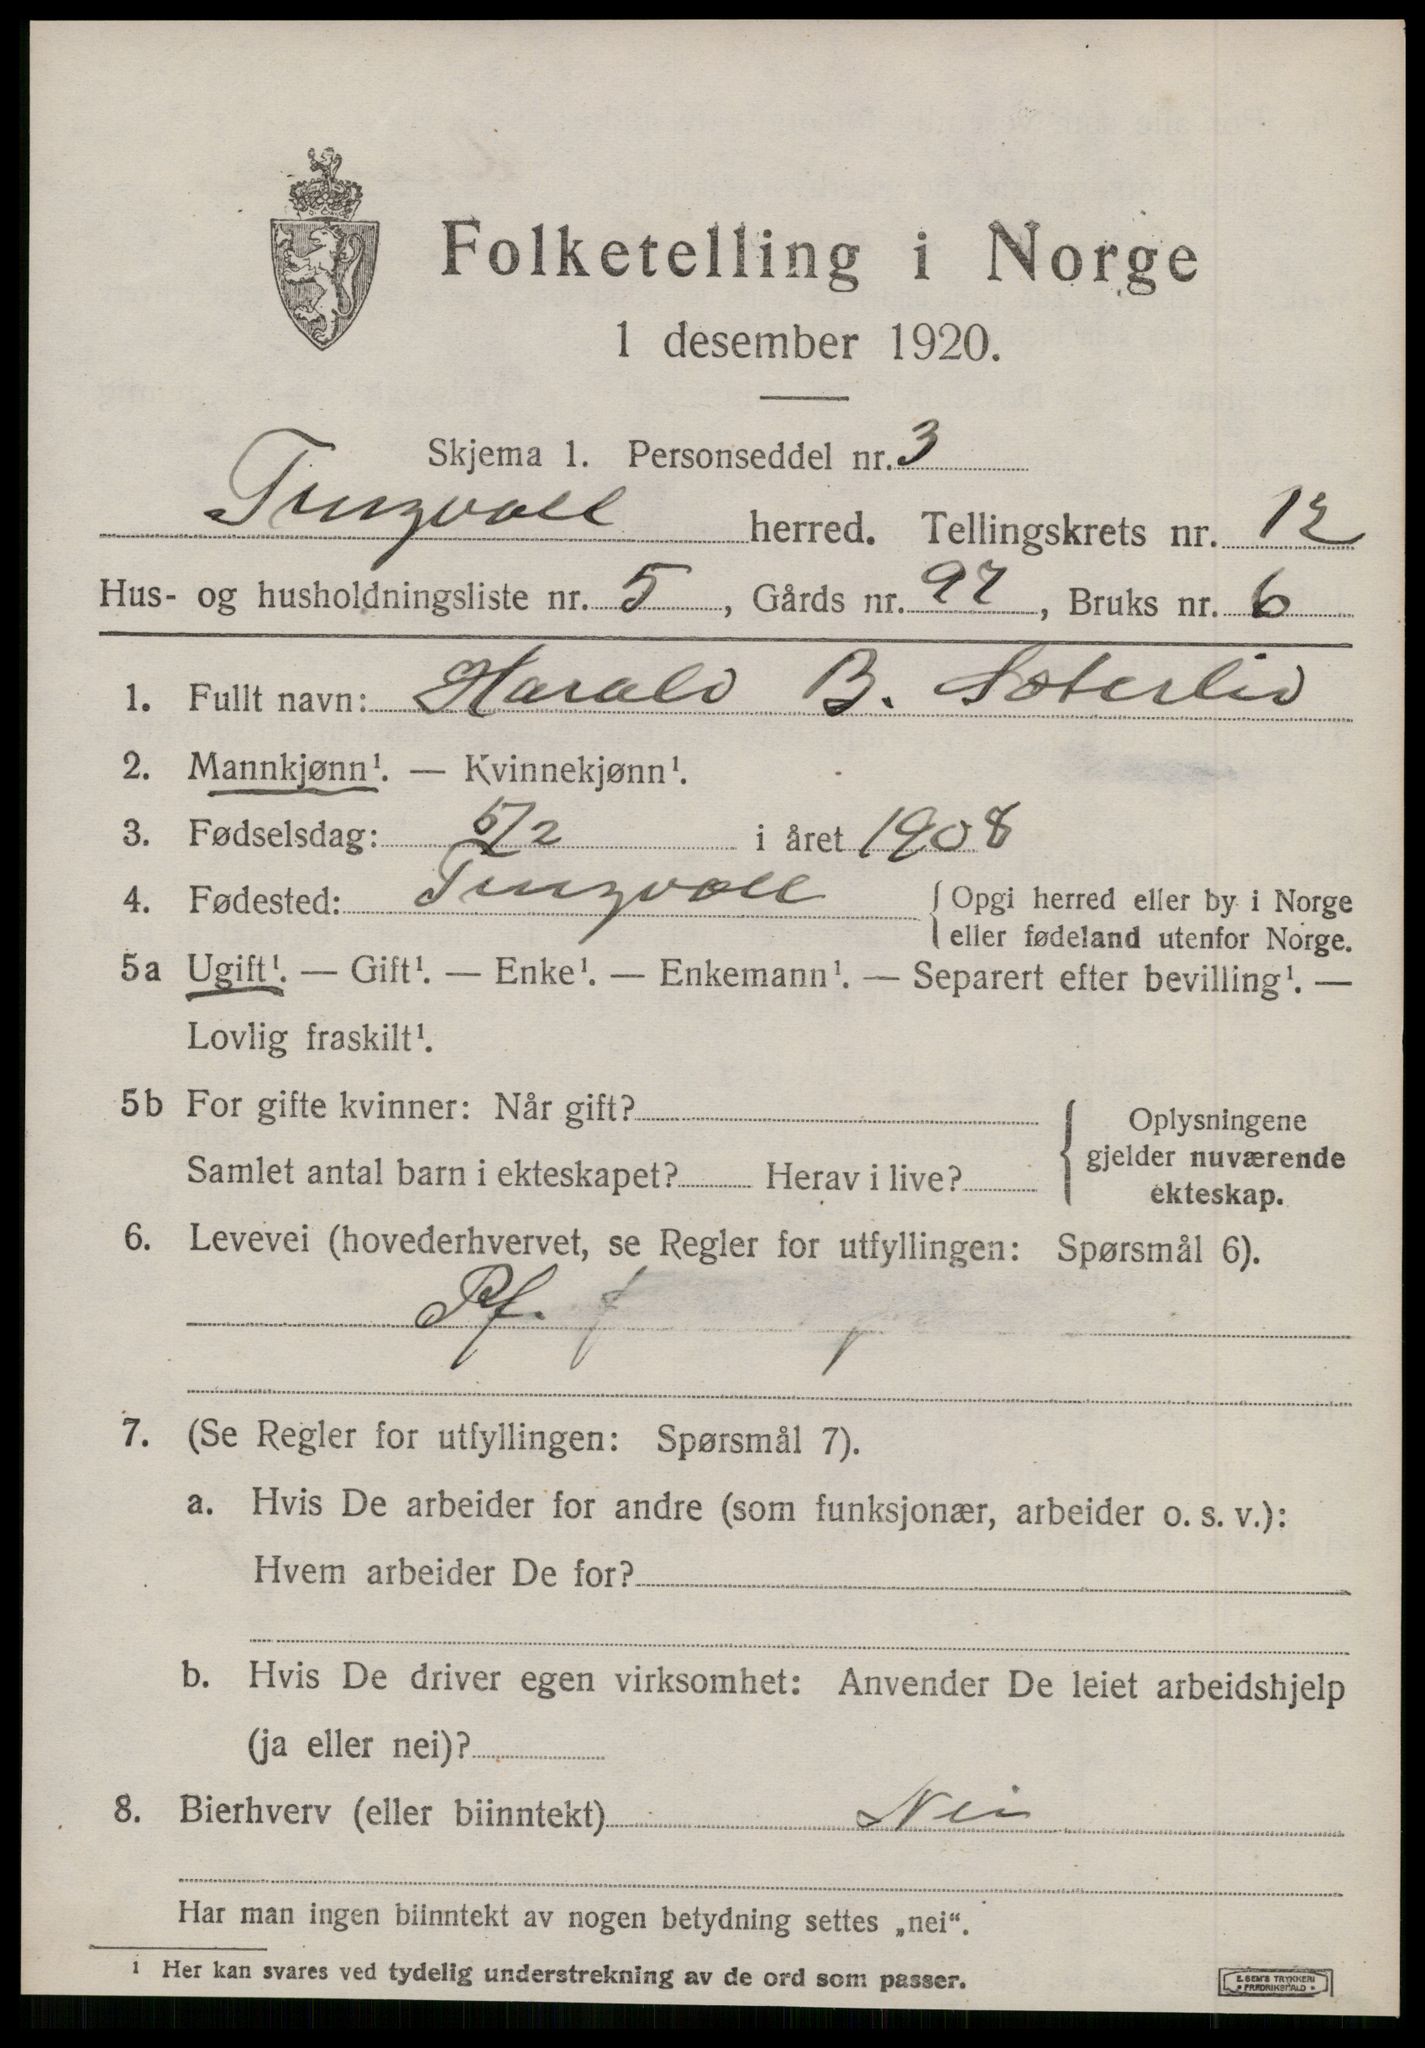 Folketelling i Norge
1 desember 1920.
Skjema 1. Personseddel nr. 3
Tingvoll herred. Tellingskrets nr. 12
Hus- og husholdningsliste nr. 5, Gårds nr. 97, Bruks nr. 6
1. Fullt navn: Harald B. Sæterlid
2. Mannkjønn¹. — Kvinnekjønn¹.
3. Fødselsdag: 5/2 i året 1908
4. Fødested: Tingvoll { Opgi herred eller by i Norge
eller fødeland utenfor Norge.
5a Ugift¹. — Gift¹. — Enke¹. — Enkemann¹. — Separert efter bevilling¹. —
Lovlig fraskilt¹.
5b For gifte kvinner: Når gift?
Samlet antal barn i ekteskapet? Herav i live?
{ Oplysningene
gjelder nuværende
ekteskap.
6. Levevei (hovederhvervet, se Regler for utfyllingen: Spørsmål 6).
Pf.
7. (Se Regler for utfyllingen: Spørsmål 7).
a. Hvis De arbeider for andre (som funksjonær, arbeider o. s. v.):
Hvem arbeider De for?
b. Hvis De driver egen virksomhet: Anvender De leiet arbeidshjelp
(ja eller nei)?
8. Bierhverv (eller biinntekt) Nei
Har man ingen biinntekt av nogen betydning settes „nei“.
1 Her kan svares ved tydelig understrekning av de ord som passer.
E. SEM'S TRYKKERI
FREDRIKSHALD